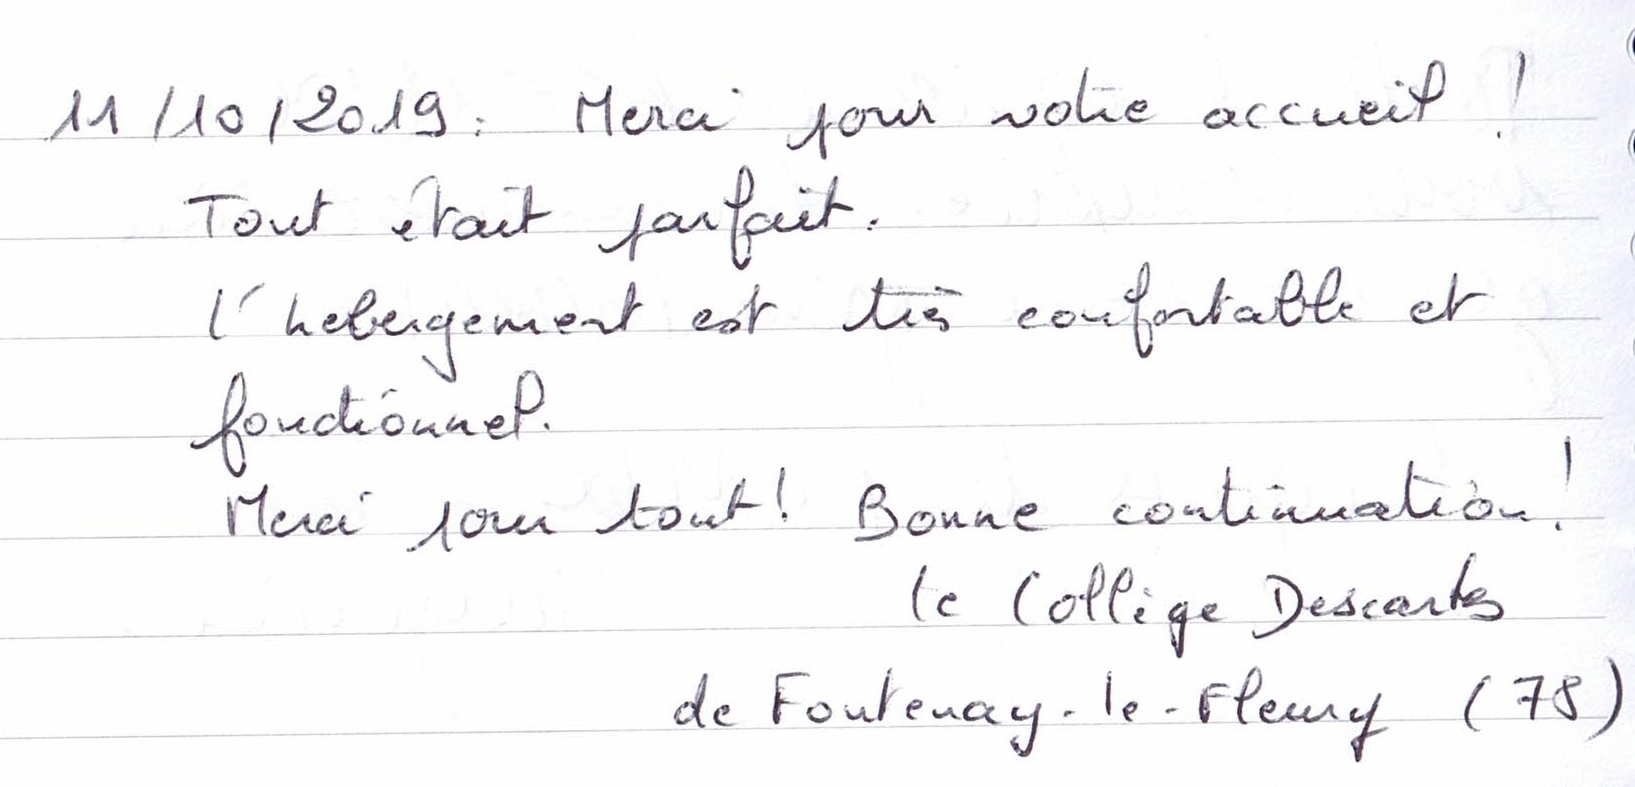 11/10/2019 : Merci pour votre accueil !
Tout était parfait.
l'hebergement est très confortable et
fonctionnel.
Merci pour tout ! Bonne continuation !
le Collège Descartes
de Fontenay-le-Fleury (78)